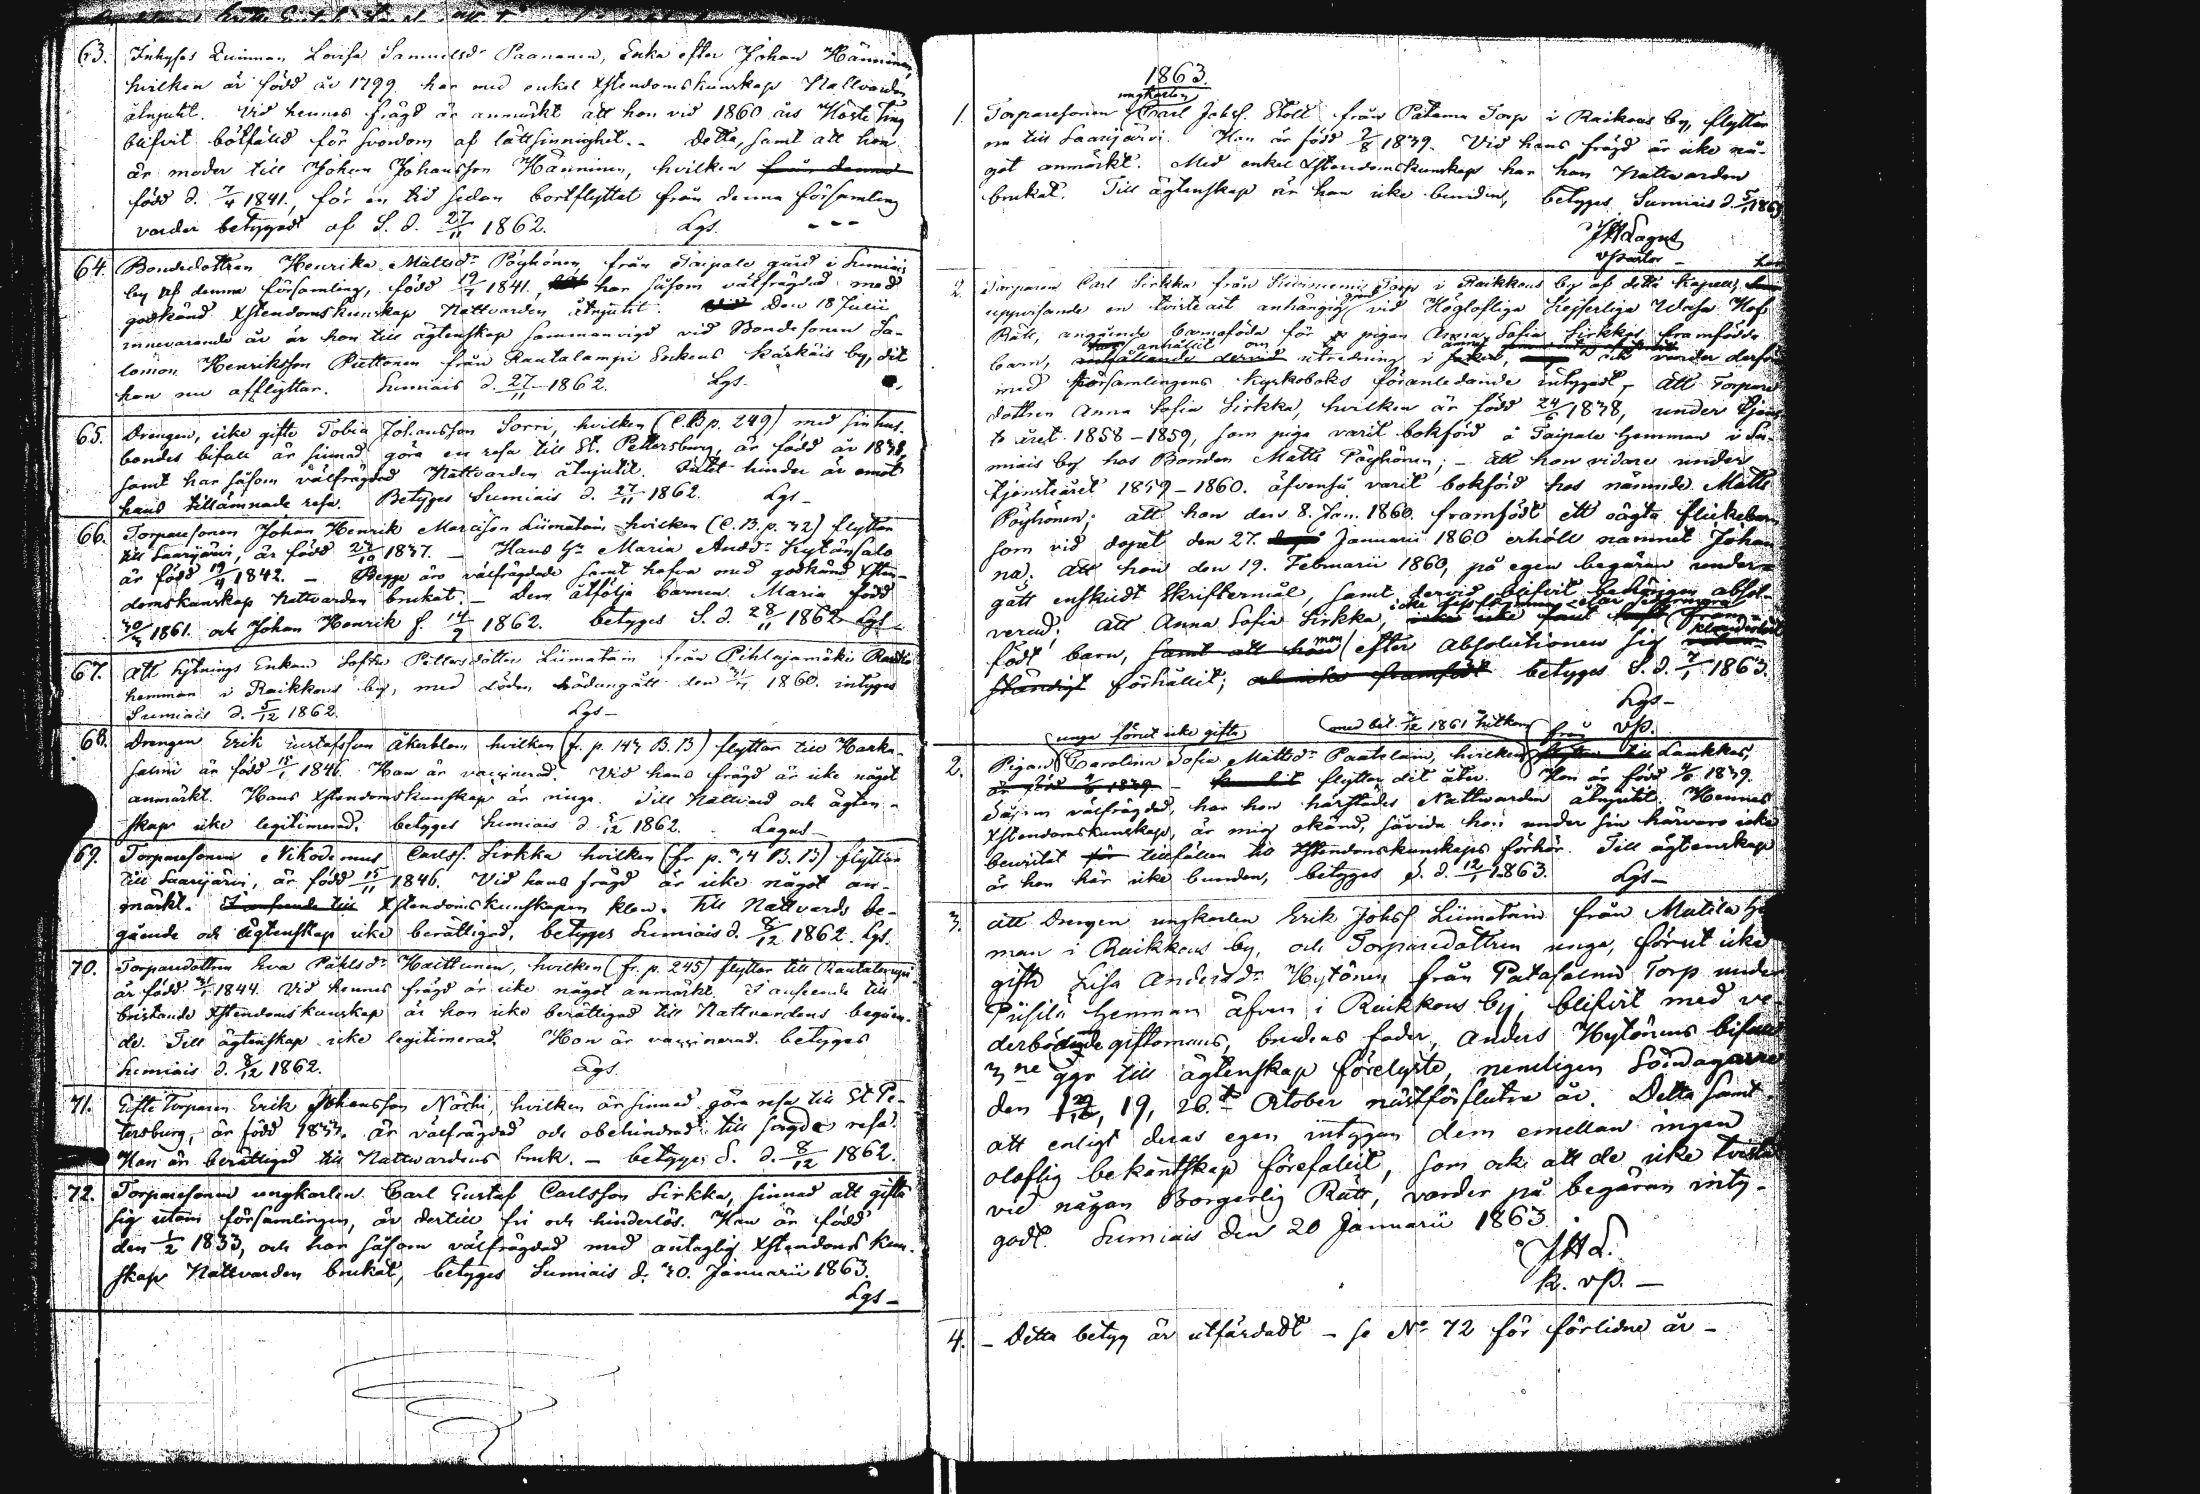 63. Inhyses Qvinnan Lovisa Samuelsdr Paananen, Enka efter Johan Hänninen,
hvilken är född år 1799, har med enkel Xstendomskunskap Nattvarden
åtnjutit. Vid hennes frägd är anmärkt att hon vid 1860 års Höste Ting
blifvit bötfälld för svordom af lättsinnighet. - Detta, samt att hon
är moder till Johan Johansson Hänninen, hvilken från denna
född d. 7/4 1841, för en tid sedan bortflyttat från denna församling
varder betygadt af S. d. 27/11 1862. Lgs. - - -
64. Bondedottren Henrika Mattsdr Pöyhönen från Taipale gård i Sumiais
by af denna församling, född 19/7 1841, har såsom välfrägdad med
godkänd Xstendomskunskap Nattvarden åtnjutit. Den 18 Juni
innevarande år är hon till ägtenskap sammanvigd vid Bondesonen Sa-
lomon Henriksson Puttonen från Rautalampi Sockens Kärkäis by, dit
hon nu afflyttar. Sumiais d. 27/11 1862. Lgs.
65. Drengen, icke gifte Tobia Johansson Sorri, hvilken (C.B. p. 249) med sin hus-
bondes bifall är sinnad göra en resa till St. Pettersburg, är född år 1838,
samt har såsom välfrägdad Nattvarden åtnjutit. Intet hinder är emot
hans tillämnade resa. Betyges Sumiais d. 27/11 1862. Lgs -
66. Torparesonen Johan Henrik Liimatain hvilken (C.B. p. 32) flyttar
till Saarijärvi, är född 1837. - Hans h. Maria Andsdr Kytänsalo
är född 19/4 1842. - Begge äro välfrägdade samt hafva med godkänd Xsten-
domskunskap Nattvarden brukat. - Dem åtfölja barnen Maria född
1861. och Johan Henrik f. 14/9 1862. betyges S. d. 28/11 1862 Lgs -
67. Att hytnings Enkan Sofia Pettersdotter Liimatain från Pihlajamäki
hemman i Raikkous by, med döden hädangått den 1860. intyges
Sumiais d. 5/12 1862. Lgs -
68. Drengen Erik Gustafsson Åkerblom hvilken (fr. p. 147 B.B) flyttar till Hanka-
salmi är född 1846. Han är vaccinerad. Vid hans frägd är icke något
anmärkt. Hans Xstendomskunskap är ringa. Till Nattvard och ägten-
skap icke legitimerad. betyges Sumiais d. 1862. Lagus -
69. Torparesonen Nikodemus Carlsf. Sirkka hvilken (fr p. 74 B.B) flyttar
till Saarijärvi, är född 15/11 1846. Vid hans frägd är icke något an-
märkt. I anseende till Xstendomskunskapen klen. Till Nattvards be-
gående och ägtenskap icke berättigad, betyges Sumiais d. 8/12 1862. Lgs.
70. Torparedottren Eva Påhlsdr Haittunen, hvilken (fr. p. 245) flyttar till Rautalampi
är född 1844. Vid hennes frägd är icke något anmärkt. I anseende till
bristande Xstendomskunskap är hon icke berättigad till Nattvardens begåen-
de. Till ägtenskap icke legitimerad. Hon är vaccinerad. betyges
Sumiais d. 8/12 1862. Lgs.
71. Gifte Torparen Erik Johansson Närhi, hvilken är sinnad göra resa till St Pe-
tersburg, är född 1837. är välfrägdad och obehindrad till sagde resa.
Han är berättigad till Nattvardens bruk. - betyges S. d. 8/12 1862.
72. Torparesonen ungkarlen Carl Gustaf Carlsson Sirkka, sinnad att gifta
sig utom församlingen, är dertill fri och hinderlös. Han är född
den 1/2 1833, och har såsom välfrägdad med antaglig Xstendomskun-
skap Nattvarden brukat, betyges Sumiais d. 20. Januarii 1863.
Lgs -
1863.
ungkarlen
1. Torparesonen Carl Johsf. Stoll från Patama Torp i Raikous by, flyttar
nu till Saarijärvi. Han är född 2/8 1839. Vid hans frägd är icke nå-
got anmärkt. Med enkel Xstendomskunskap har han Nattvarden
brukat. Till ägtenskap är han icke bunden, betyges Sumiais d. 5/1 1863
JHLagus
vPastor -
2. Torparen Carl Sirkka från Torp i Raikkous by af detta Kapell,
uppvisande en tvistesak anhängig vid Höglofliga Kejserliga Wasa Hof-
Rätt, angående barnaföda för pigan Anna Sofia Sirkkas framfödda
har anhållit om
barn, anhållande dervid utredning i saken, och varder derför
med församlingens kyrkoboks föranledande intygadt, att Torpare-
dottren Anna Sofia Sirkka, hvilken är född 24/6 1838, under tjens-
te året 1858-1859, som piga varit bokförd å Taipale hemman i Su-
miais by hos Bonden Matts Pöyhönen; - att hon vidare under
tjensteåret 1859-1860. äfvenså varit bokförd hos nämnde Matts
Pöyhönen; att hon den 8. Jan. 1860. framfödt ett oägta flickebarn
som vid dopet den 27. Januarii 1860 erhöll namnet Johan-
na; att hon den 19. Februarii 1860, på egen begäran under-
gått enskildt skriftermål, samt dervid blifvit behörigen absol-
verad; att Anna Sofia Sirkka, icke
födt barn, samt att hon men efter Absolutionen sig klanderlöst
ständigt förhållit; och icke framfödt betyges S. d. 7/1 1863.
Lgs -
vP.
unga förut icke gifta med bet. 1861 hitkom från
2. Pigan Carolina Sofia Mattsdr Paatelain, hvilken flyttar till Laukkas,
är född 1839 - flyttar dit åter. Hon är född 1839.
Såsom välfrägdad, har hon härstädes Nattvarden åtnjutit. Hennes
Xstendomskunskap, är mig okänd, såvida hon under sin härvaro icke
bevistat för tillfällen till Xstendomskunskaps förhör. Till ägtenskap
är hon här icke bunden, betyges S. d. 12/1 1863. Lgs -
3. Att Drengen ungkarlen Erik Johsf. Liimatain från Matila he
man i Raikkous by, och Torparedottren unga, förut icke
gifta Lisa Andersdr Hytönen från Patasalmi Torp under
Piisilä hemman äfven i Raikkous by, blifvit med ve-
derbörande giftomans, brudens fader, Anders Hytönens bifall
3ne ggr till ägtenskap förelyste, nemligen Söndagarne
den 12, 19, 26. October nästförflutne år. Detta samt
att enligt deras egen intygan dem emellan ingen
oloflig bekantskap förefallit, som ock att de icke tvista
vid någon Borgerlig Rätt, varder på begäran inty-
gadt. Sumiais den 20 Januarii 1863.
JHL.
k. vP. -
4. - Detta betyg är utfärdadt - se No 72 för förlidne år -